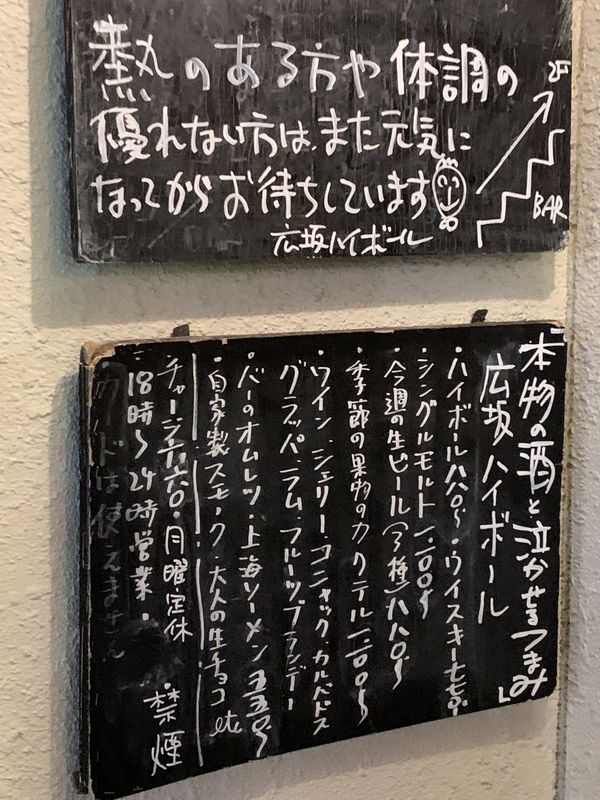 熱のある方や体調の
優れない方は、また元気に
なってからお待ちしています
広坂ハイボール
2F
BAR
本物の酒と泣かせるつまみ
広坂ハイボール」
・ハイボール八八〇〜・ウイスキー七七〇〜
・シングルモルト一、一〇〇〜
・今週の生ビール(3種)八八〇〜
・季節の果物のカクテル一、一〇〇〜
・ワイン、シェリー・コニャック・カルバドス
グラッパ、ラム・フルーツブランデー
・バーのオムレツ・上海ソーメン五五〇〜
・自家製スモーク・大人の生チョコ etc
チャージ六六〇・月曜定休
18時〜24時営業・
カードは使えません
禁煙